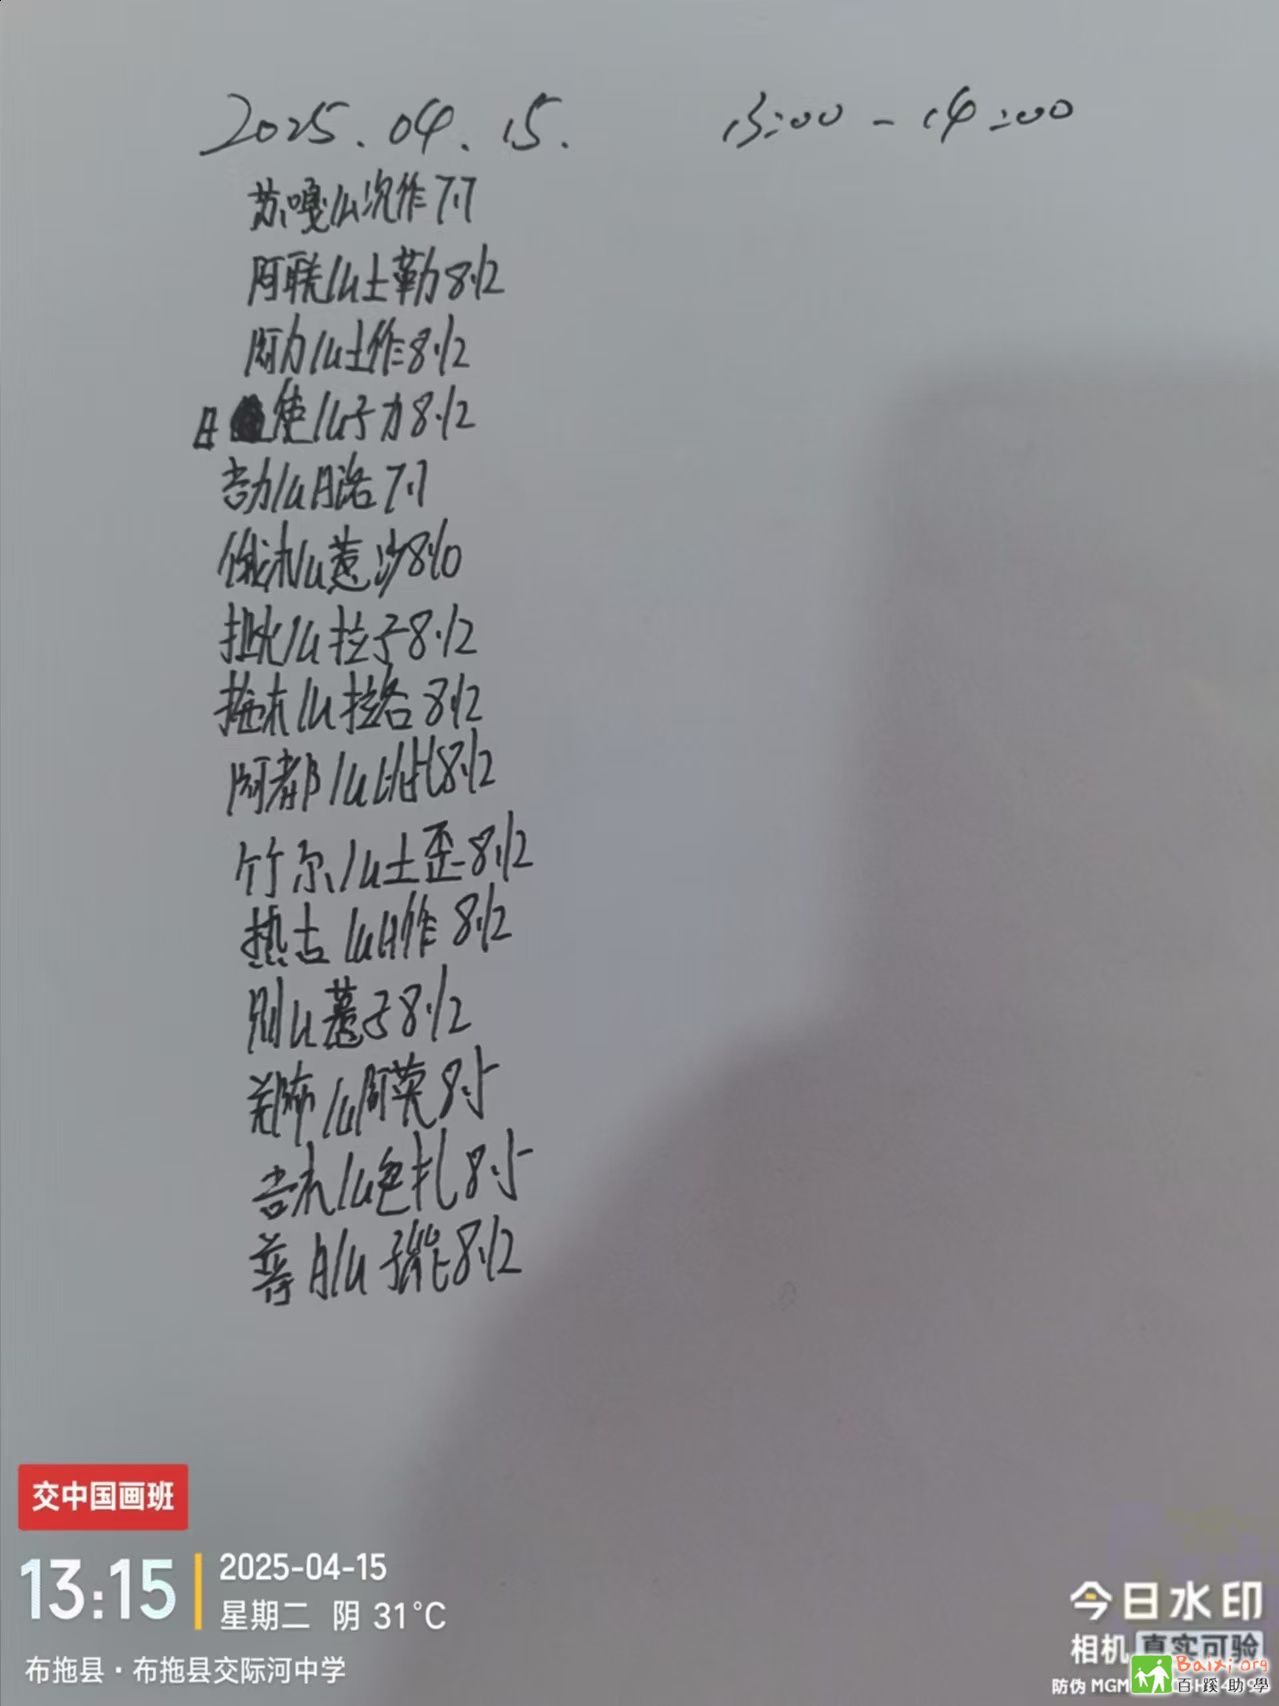 2025.04.15. 13:00-14:00
苏嘎么次作7.1
阿联么土勒8.12
阿力么土作8.12
日使么子力8.12
吉力么月洛7.1
俄木么惹沙8.10
扯火么拉子8.12
拖木么拉各8.12
阿都么8.12
竹尔么土歪8.12
热古么日作8.12
么子8.12
么阿英8.5
吉木么色扎8.5
么8.12
交中国画班
13:15
2025-04-15
星期二 阴 31°C
布拖县·布拖县交际河中学
今日水印
相机 真实可验
防伪 MGM
Baixi.org
百蹊助學